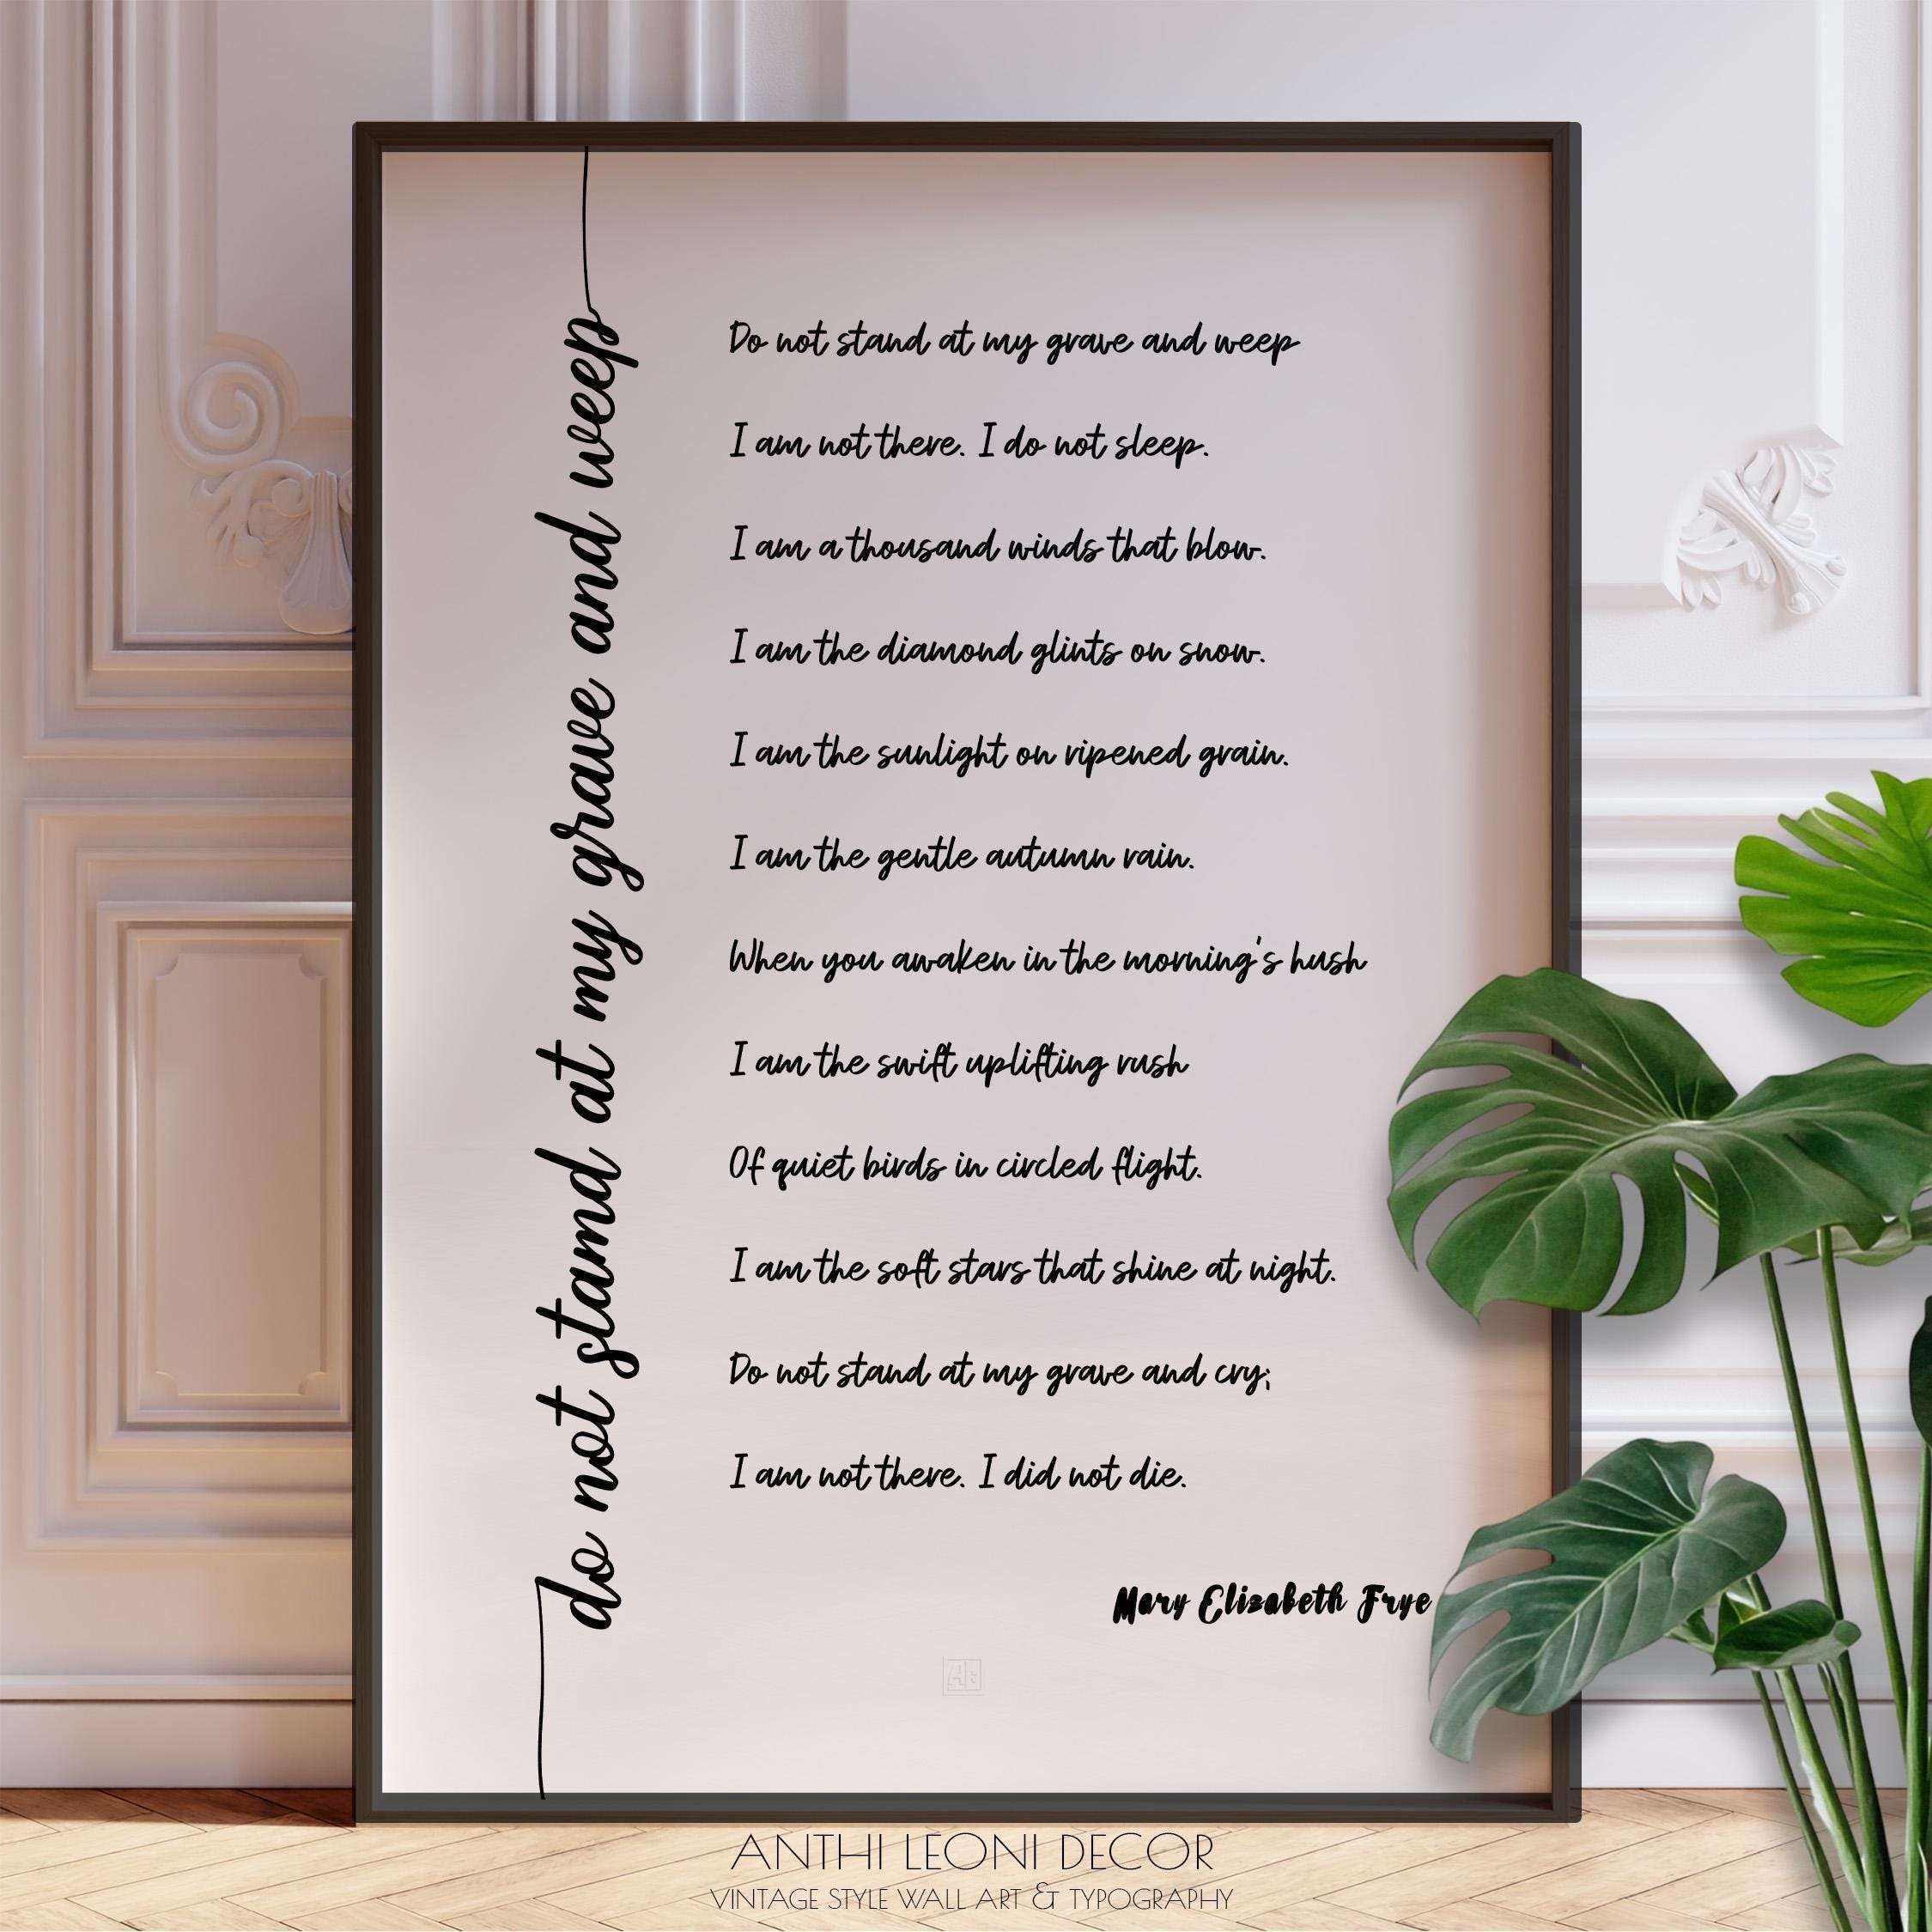 do not stand at my grave and weep
Do not stand at my grave and weep
I am not there. I do not sleep.
I am a thousand winds that blow.
I am the diamond glints on snow.
I am the sunlight on ripened grain.
I am the gentle autumn rain.
When you awaken in the morning's hush
I am the swift uplifting rush
Of quiet birds in circled flight.
I am the soft stars that shine at night.
Do not stand at my grave and cry;
I am not there. I did not die.
Mary Elizabeth Frye
ANTHI LEONI DECOR
VINTAGE STYLE WALL ART & TYPOGRAPHY